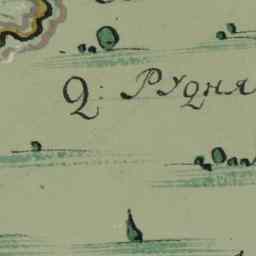 Д: Рудня